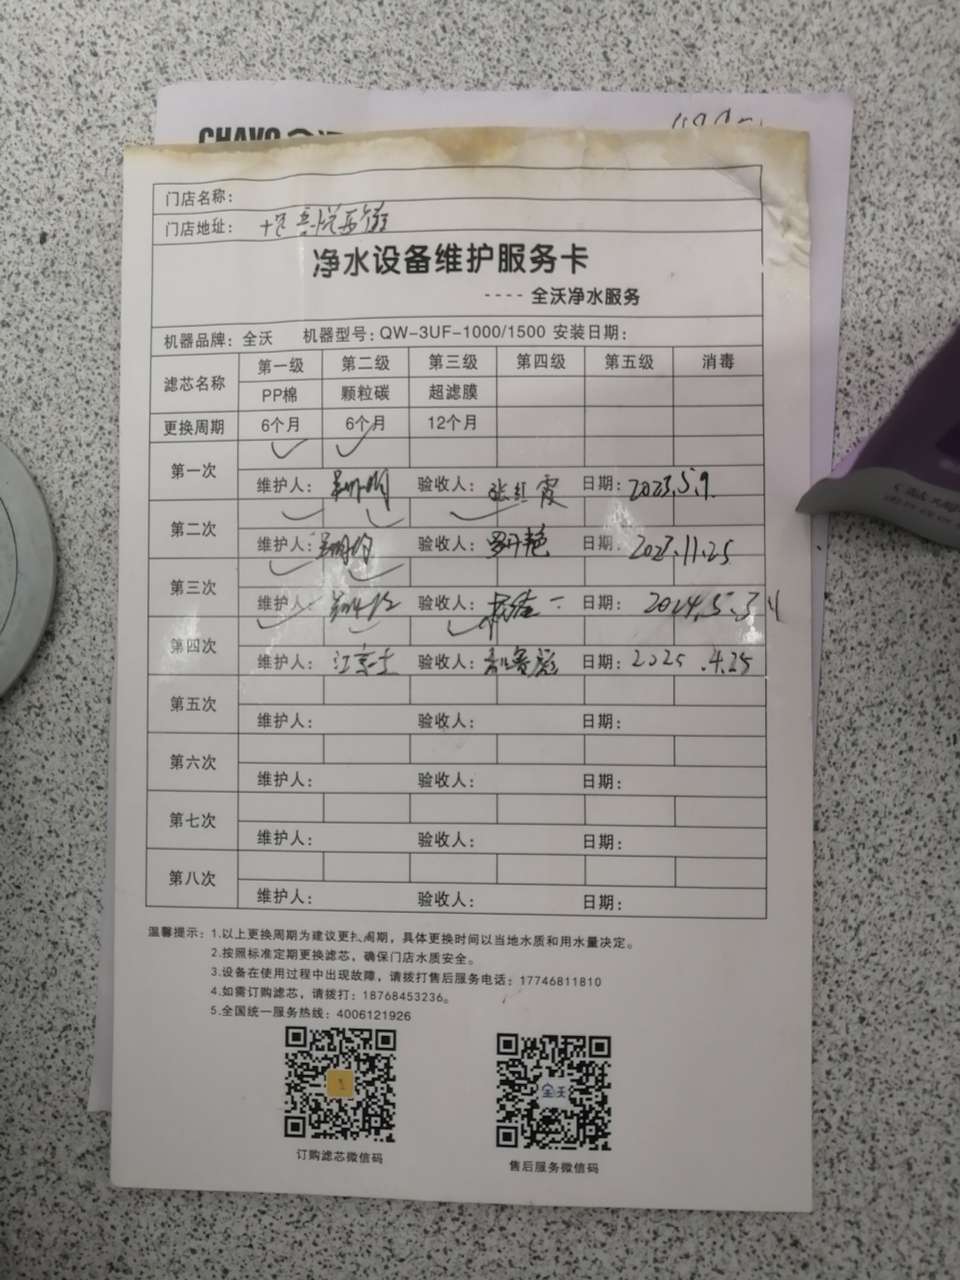 门店名称：
门店地址：
净水设备维护服务卡
----全沃净水服务
机器品牌：全沃 机器型号：QW-3UF-1000/1500 安装日期：
滤芯名称 第一级 第二级 第三级 第四级 第五级 消毒
PP棉 颗粒碳 超滤膜
更换周期 6个月 6个月 12个月
第一次
维护人： 验收人：张红霞 日期：2023.5.9.
第二次
维护人： 验收人：罗丹艳 日期：2023.11.25
第三次
维护人： 验收人： 日期：2024.5.
第四次
维护人： 验收人： 日期：2025.4.25
第五次
维护人： 验收人： 日期：
第六次
维护人： 验收人： 日期：
第七次
维护人： 验收人： 日期：
第八次
维护人： 验收人： 日期：
温馨提示：1.以上更换周期为建议更换周期，具体更换时间以当地水质和用水量决定。
2.按照标准定期更换滤芯，确保门店水质安全。
3.设备在使用过程中出现故障，请拨打售后服务电话：17746811810
4.如需订购滤芯，请拨打：18768453236。
5.全国统一服务热线：4006121926
全沃
订购滤芯微信码 售后服务微信码